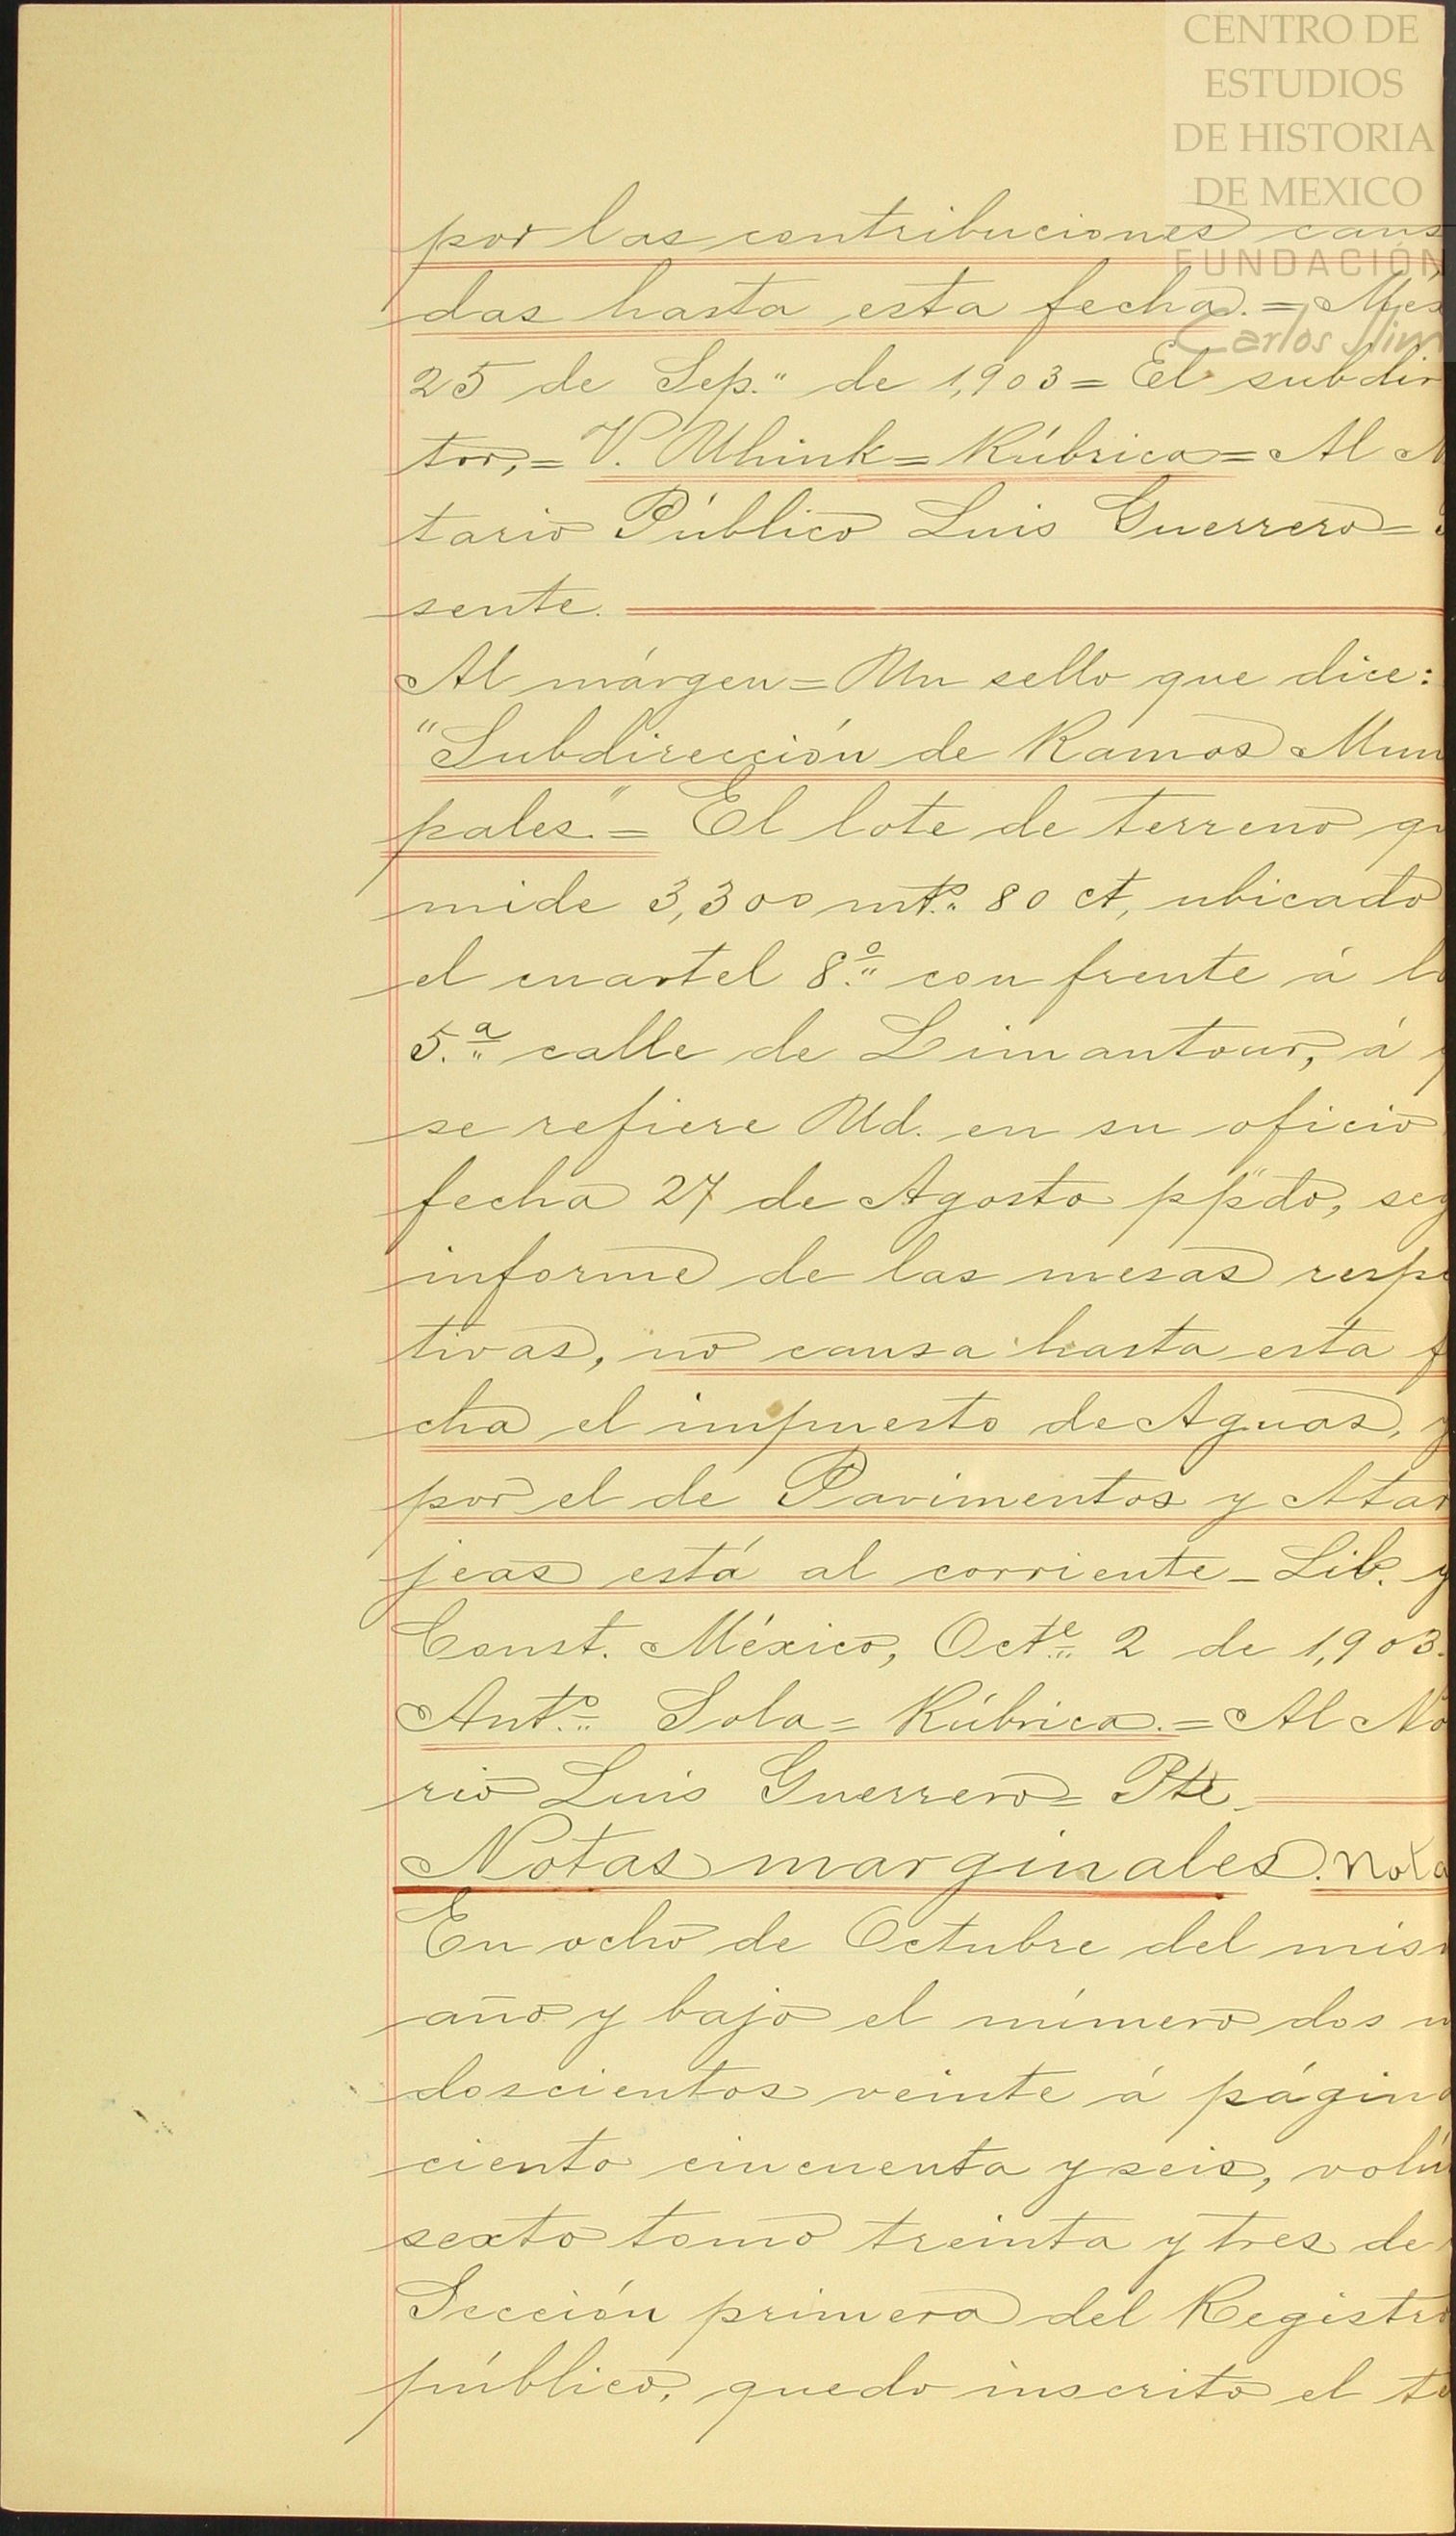 CENTRO DE
ESTUDIOS
DE HISTORIA
DE MEXICO
FUNDACIÓN
Carlos Slim
por las contribuciones caus
das hasta esta fecha. = Méx
25 de Sep." de 1,903 = El subdir
tor, = V. Uhink = Rúbrica = Al N
tario Público Luis Guerrero =
sente.
Al márgen = Un sello que dice:
"Subdirección de Ramos Mun
pales." = El lote de terreno qu
mide 3,300 mtº.. 80 ct, ubicado
el cuartel 8º.. con frente á la
5.ª calle de Limantour, á
se refiere Ud. en su oficio
fecha 27 de Agosto ppdo, seg
informe de las mesas respe
tivas, no causa hasta esta f
cha el impuesto de Aguas, y
por el de Pavimentos y Atar
jeas está al corriente - Lib. y
Const. México, Octe.. 2 de 1,903.
Antº.. Sola = Rúbrica. = Al No
rio Luis Guerrero = Pte.
Notas marginales. Nota
En ocho de Octubre del mis
año y bajo el número dos m
doscientos veinte á página
ciento cincuenta y seis, volú
sexto tomo treinta y tres de
Sección primera del Registro
público, quedo inscrito el te